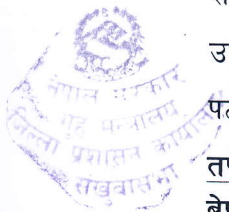 नेपाल सरकार
गृह मन्त्रालय
जिल्ला प्रशासन कार्यालय
संखुवासभा
उ